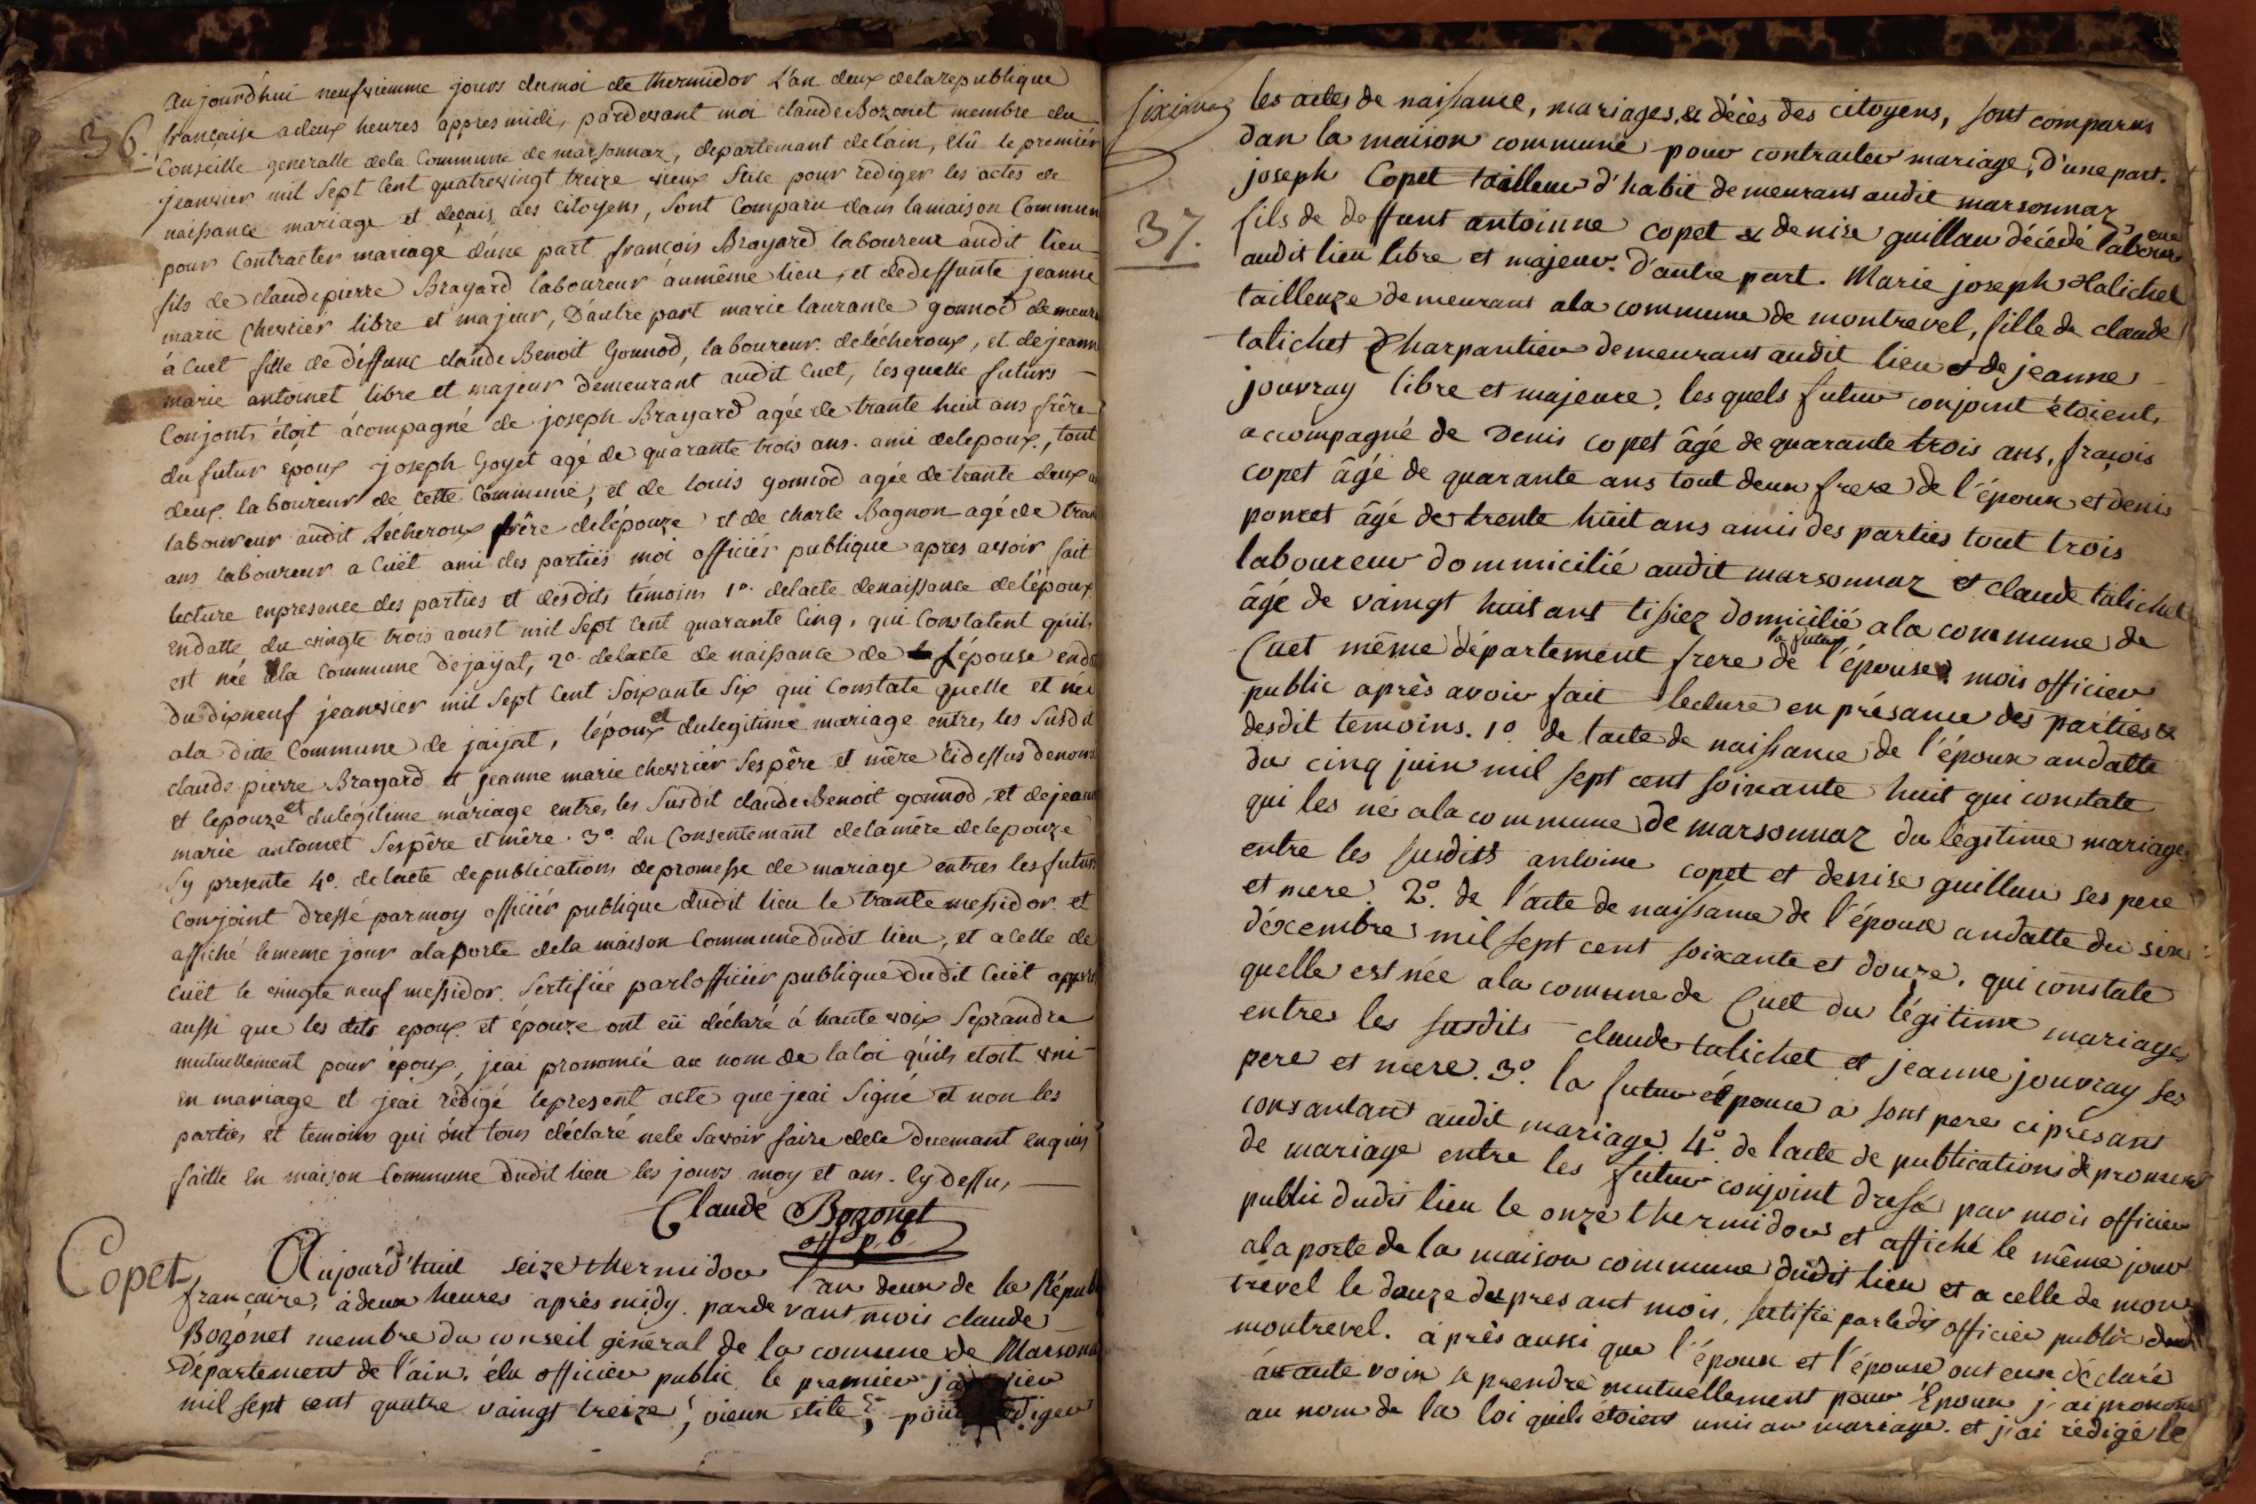 Aujourd'hui neufviemme jours dumoi de thermidor L'an deux delarepublique
36. française adeux heures appres midi, pardevant moi claude Bozonet membre du
Conseille generalle dela Commune de marsonnaz, departemant delain, élû le premiér
jeanvier mil Sept Cent quatrevingt treize vieux Stile pour rediger les actes de
naissance mariage et deçais des Citoyens, Sont Comparu dans lamaison Commun
pour Contracter mariage d'une part françois Brayard laboureur audit lieu
fils de claudepierre Brayard laboureur áumême lieu, et dedeffunte jeanne
marie Chevriér libre et majeur, D'áutre part marie laurance gonnod demeur
à Cuet fille de déffunc claude Benoit Gonnod, laboureur delécheroux, et dejeann
marie antoinet libre et majeur demeurant audit Cuet, lesquelle futurs
Conjonts étoit ácompagné de joseph Brayard agée de trante huit ans frêre
du futur époux joseph Goyet agé de quarante trois ans. ami delepoux, tout
deux laboureur de Cette Commune, et de louis gonnod agée de trante deux a
laboureur audit Lécheroux frêre delépouze et de charle Bagnon agé de tran
ans laboureur a Cuët ami des partiës moi officiér publique apres avoir fait
lecture enpresence des parties et desdits témoins 1º. delacte denaissance delépoux
endatte du vingte trois aoust mil Sept Cent quarante Cinq, qui Constatent quil
est née ala Commune dejaÿat, 2º. delacte de naissance de l'épouse enda
du dixneuf jeanvier mil Sept Cent Soixante Six qui Constate quelle et née
ala ditte Commune de jaiyat, lépoux et dulegitime mariage entre, les Susdit
claude pierre Brayard et jeanne marie chevriér Sespêre et mêre Cidessus denom
et lepouze et dulégitime mariage entre, les Susdit claude Benoit gonnod, et dejeann
marie antoinet Sespêre et mêre. 3º. du Consentemant delamêre delepouze
Sy presente 4º. delacte depublications depromesse de mariage entres les futur
Conjoint dressé parmoy officiér publique dudit lieu le trante messidor et
affiché lememe jour alaporte dela maison Commune dudit lieu, et acelle de
Cuët le vingte neuf messidor. Sertifiée parlofficiér publique dudit Cuët appre
aussi que les dits epoux et épouze ont eü déclaré á haute voix Seprandre
mutuellement pour époux, jeai prononcé au nom de laloi quils étoit uni
en mariage et jeai rédigé lepresent acte que jeai Signé et non les
parties et temoins qui ónt tous déclaré nele Savoir faire dece duemant enquis
faitte en maison Commune dudit lieu les jours moy et ans. Cy dessus
Claude Bozonet
off p. b.
Copet
Aujourd'huit seize thermidor l'an deux de la Répub
française, à deux heures après midy. pardevant mois claude
Bozonet membre du conseil général de la comune de Marsona
Département de l'ain. élu officier public le premier
mil sept cent quatre vaingt treize, vieux stile, pour
sixiemes les actes de naissance, mariages, & décès des citoyens, sont comparus
dan la maison commune pour contracter mariage, d'une part.
joseph Copet tailleur d'habit demeurant audit marsonnaz
37. fils de deffunt antoinne copet & denise guillau décédé laboureur
audit lieu libre et majeur. D'autre part. Marie joseph talichet
tailleuze demeurant ala commune de montrevel, fille de claude
talichet Charpantier demeurant audit lieu et de jeanne
jouvray libre et majeure. les quels futur conjoint étoient
accompagné de Denis copet âgé de quarante trois ans, fraçois
copet âgé de quarante ans tout deux frere de l'époux et denis
poncet âgé de trente huit ans amis des parties tout trois
laboureur dommicilié audit marsonnaz et claude talichet
âgé de vaingt huit ans tissiez domicilié ala commune de
Cuet même département frere de la futur l'épouse mois officier
public après avoir fait lecture en présance des parties &
desdit temoins. 1º de l'acte de naissance de l'époux andatte
du cinq juin mil sept cent soixante huit qui constate
qui les né ala commune de marsonnaz du légitime mariage
entre les susdits antoine copet et denise guillau ses pere
et mere. 2º. de l'acte de naissance de l'épouse andatte du six
décembre mil sept cent soixante et douze, qui constate
quelle est née ala comune de Cuet du légitime mariage
entres les susdits claude talichet et jeanne jouvray ses
pere et mere. 3º. la futur épouce a sont pere ci présant
consantant audit mariage. 4º de l'acte de publications de promess
de mariage entre les futur conjoint dressé par mois officier
public dudit lieu le onze thermidor et affiché le même jour
ala porte de la maison commune dudit lieu et a celle de mon
trevel le douze du présant mois, sertifié par ledit officier public dud
montrevel. après aussi que l'époux et l'épouse ont eux déclaré
á aute voix se prendre mutuellement pour Epoux j'ai prononcé
au nom de la loi quils étoient unis an mariage. et j'ai rédigé le